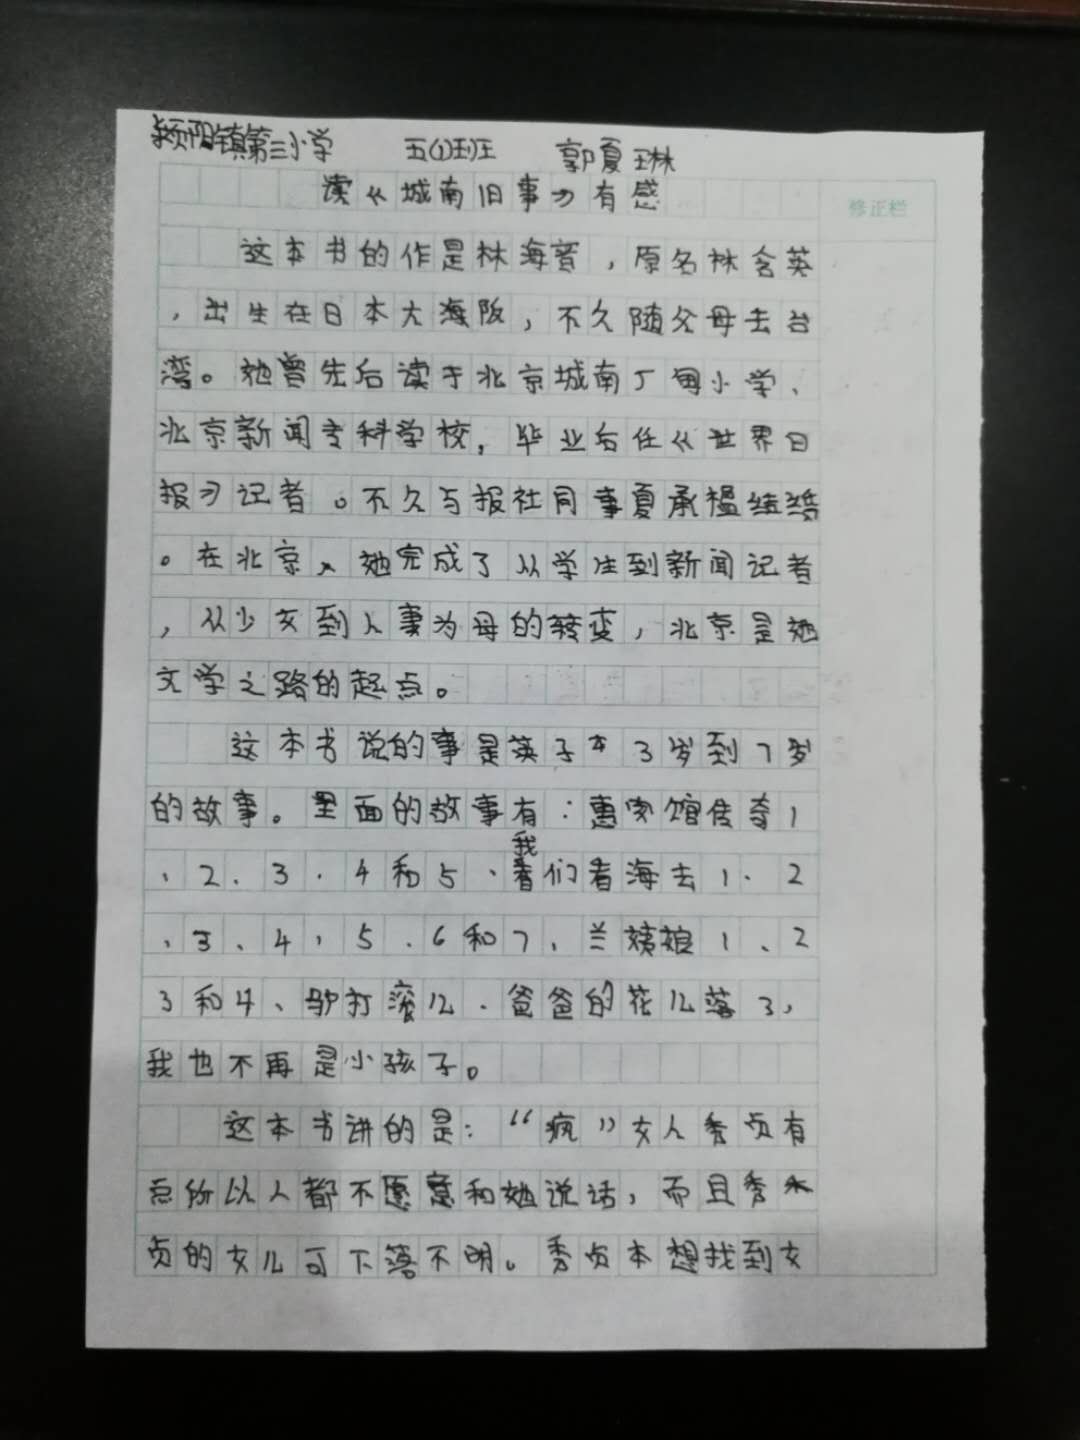 颍阳镇第三小学 五(1)班 郭夏琳
读《城南旧事》有感
修正栏
这本书的作是林海音，原名林含英
，出生在日本大海阪，不久随父母去台
湾。她曾先后读于北京城南厂甸小学、
北京新闻专科学校，毕业后任《世界日
报》记者。不久与报社同事夏承楹结婚
。在北京，她完成了从学生到新闻记者
，从少女到人妻为母的转变，北京是她
文学之路的起点。
这本书说的事是英子本3岁到7岁
的故事。里面的故事有：惠安馆传奇1
、2、3、4和5、我们看海去1、2
、3、4、5、6和7、兰姨娘1、2
3和4、驴打滚儿、爸爸的花儿落了，
我也不再是小孩子。
这本书讲的是：“疯”女人秀贞有
点所以人都不愿意和她说话，而且秀
贞的女儿可下落不明。秀贞本想找到女